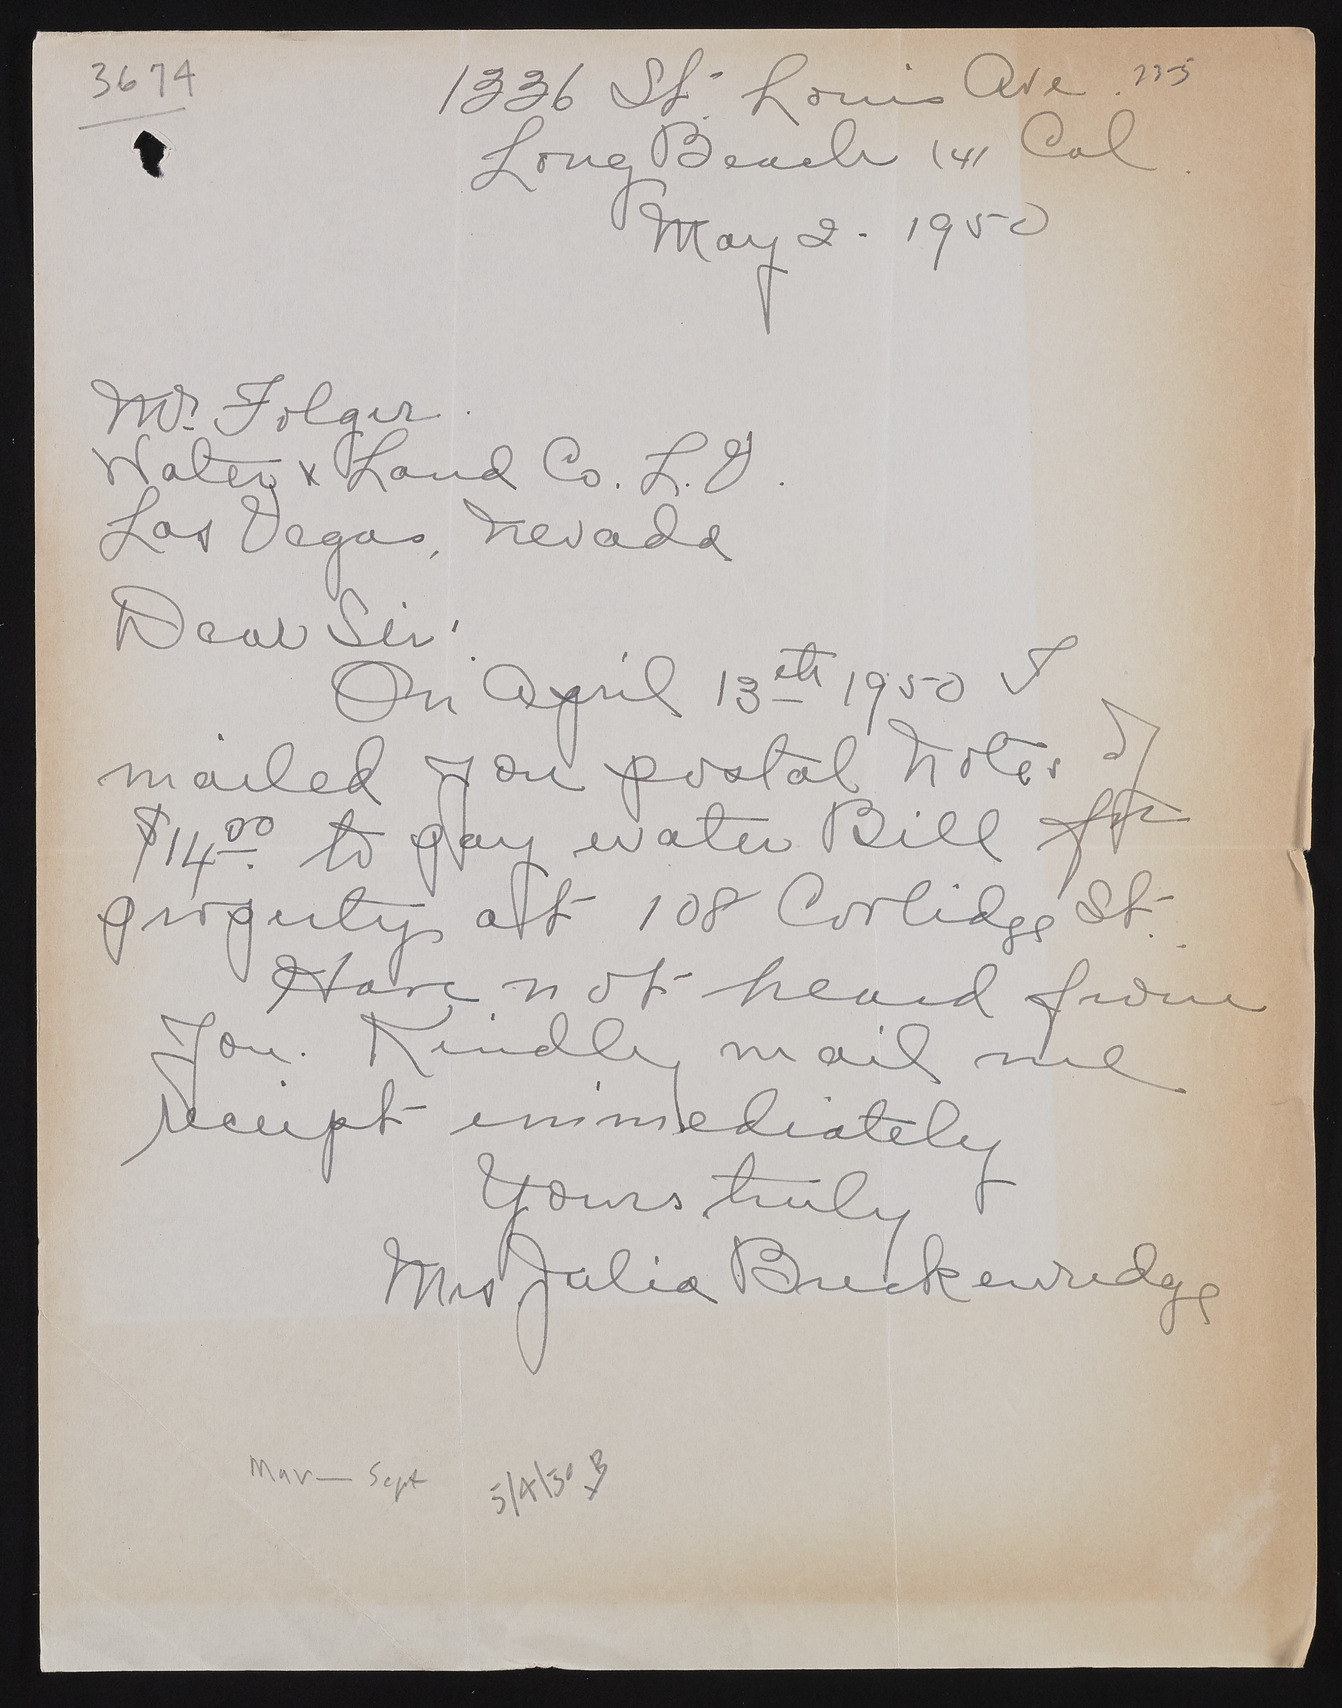 3674
1336 St. Louis Ave.
Long Beach (4) Cal
May 2. 1950
Mr. Folger
Water & Land Co. L.V.
Las Vegas, Nevada
Dear Sir:
On April 13th 1950 I
mailed you postal notes of
$14.00 to pay water Bill for
property at 108 Coolidge St.
Have not heard from
you. Kindly mail me
receipt immediately
Yours truly
Mrs Julia Breckenridge
Mar — Sept 5/4/50 B